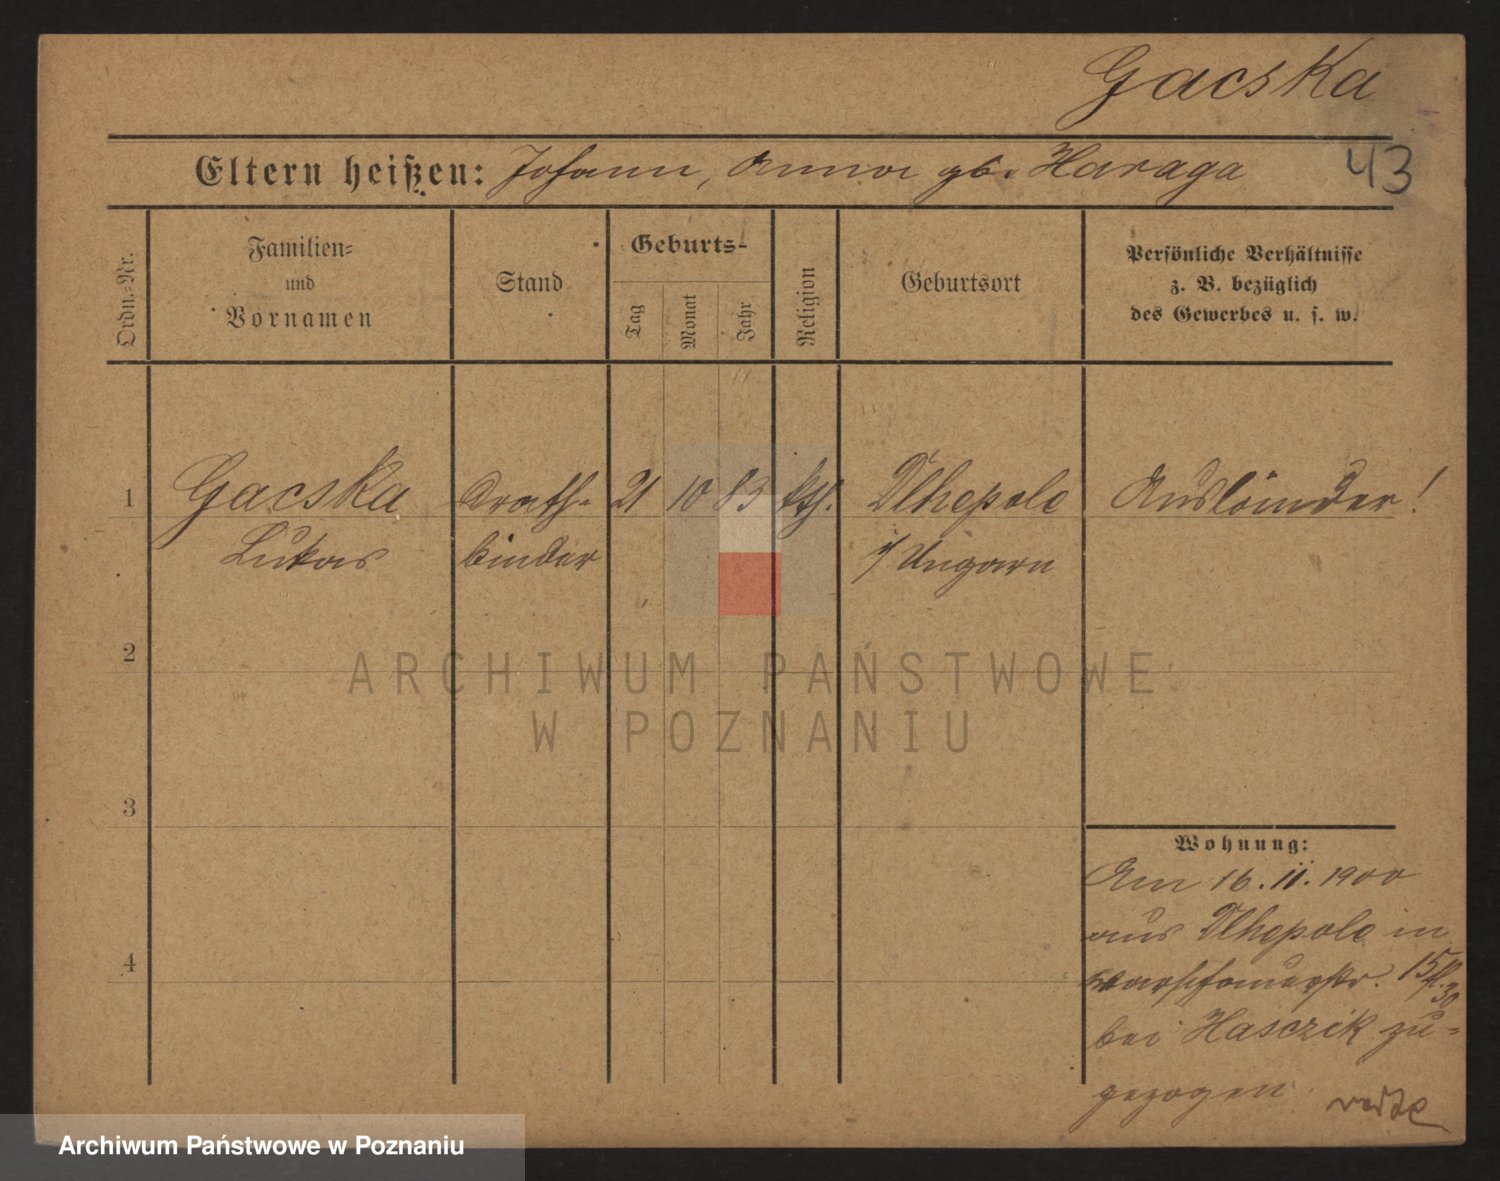 Gacska
43
Eltern heißen: Johann, Anna gb. Haraga
Ordn.-Nr.
Familien-
und
Vornamen
Stand
Geburts-
Tag
Monat
Jahr
Religion
Geburtsort
Persönliche Verhältnisse
z. B. bezüglich
des Gewerbes u. s. w.
1 Gacska Drath- 21 10 83 kth. Dlhepole Ausländer!
Lukas binder i/ Ungarn
2
3
4
Wohnung:
Am 16. 11. 1900
aus Dlhepole in
Warschauerstr. 15
bei Hasczik zu-
gezogen.
ARCHIWUM PAŃSTWOWE
W POZNANIU
Archiwum Państwowe w Poznaniu